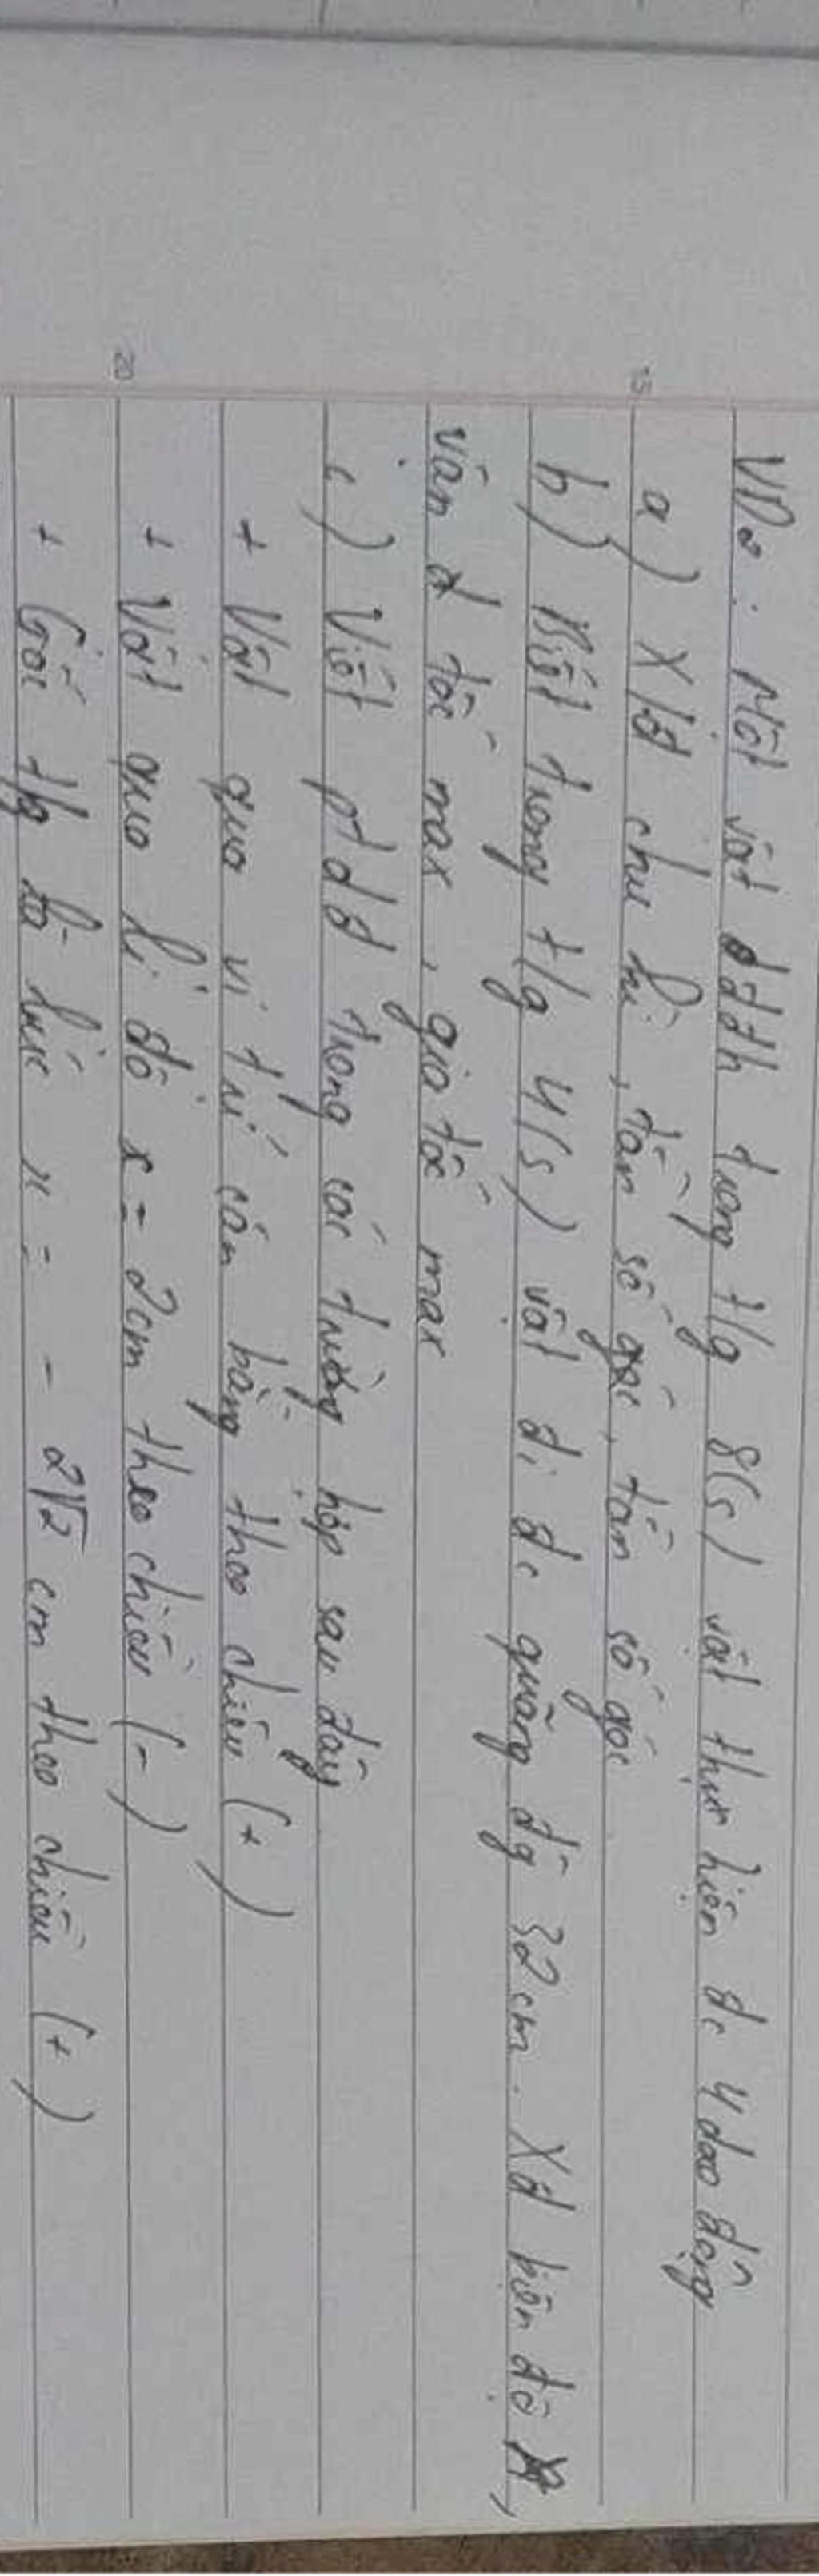 VD2: Một vật dđđh trong t/g 8(s) vật thực hiện đc 4 dao động
15
a) Xđ chu kì, tần số góc, tần số góc
b) Biết trong t/g 4(s) vật đi đc quãng đg 32cm. Xđ biên độ,
vận tốc max, gia tốc max
c) Viết ptdđ trong các trường hợp sau đây
+ Vật qua vị trí cân bằng theo chiều (+)
20
+ Vật qua li độ x = 2cm theo chiều (-)
+ Gốc t/g là lúc x = - 2√2 cm theo chiều (+)